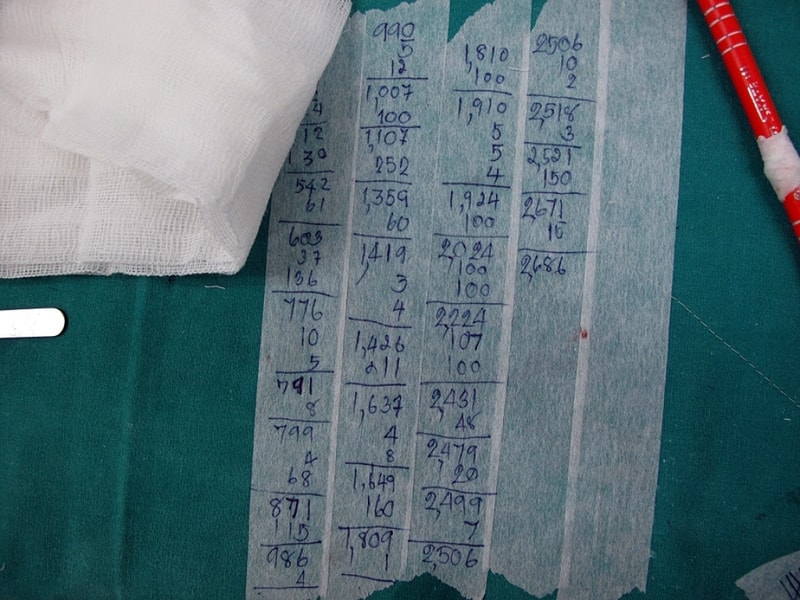 4
12
130
542
61
603
37
136
776
10
5
791
8
799
4
68
871
115
986
4
990
5
12
1,007
100
1,107
252
1,359
60
1,419
3
4
1,426
211
1,637
4
8
1,649
160
1,809
1
1,810
100
1,910
5
5
4
1,924
100
2,024
100
100
2,224
107
100
2,431
48
2,479
20
2,499
7
2,506
2506
10
2
2,518
3
2,521
150
2,671
15
2,686